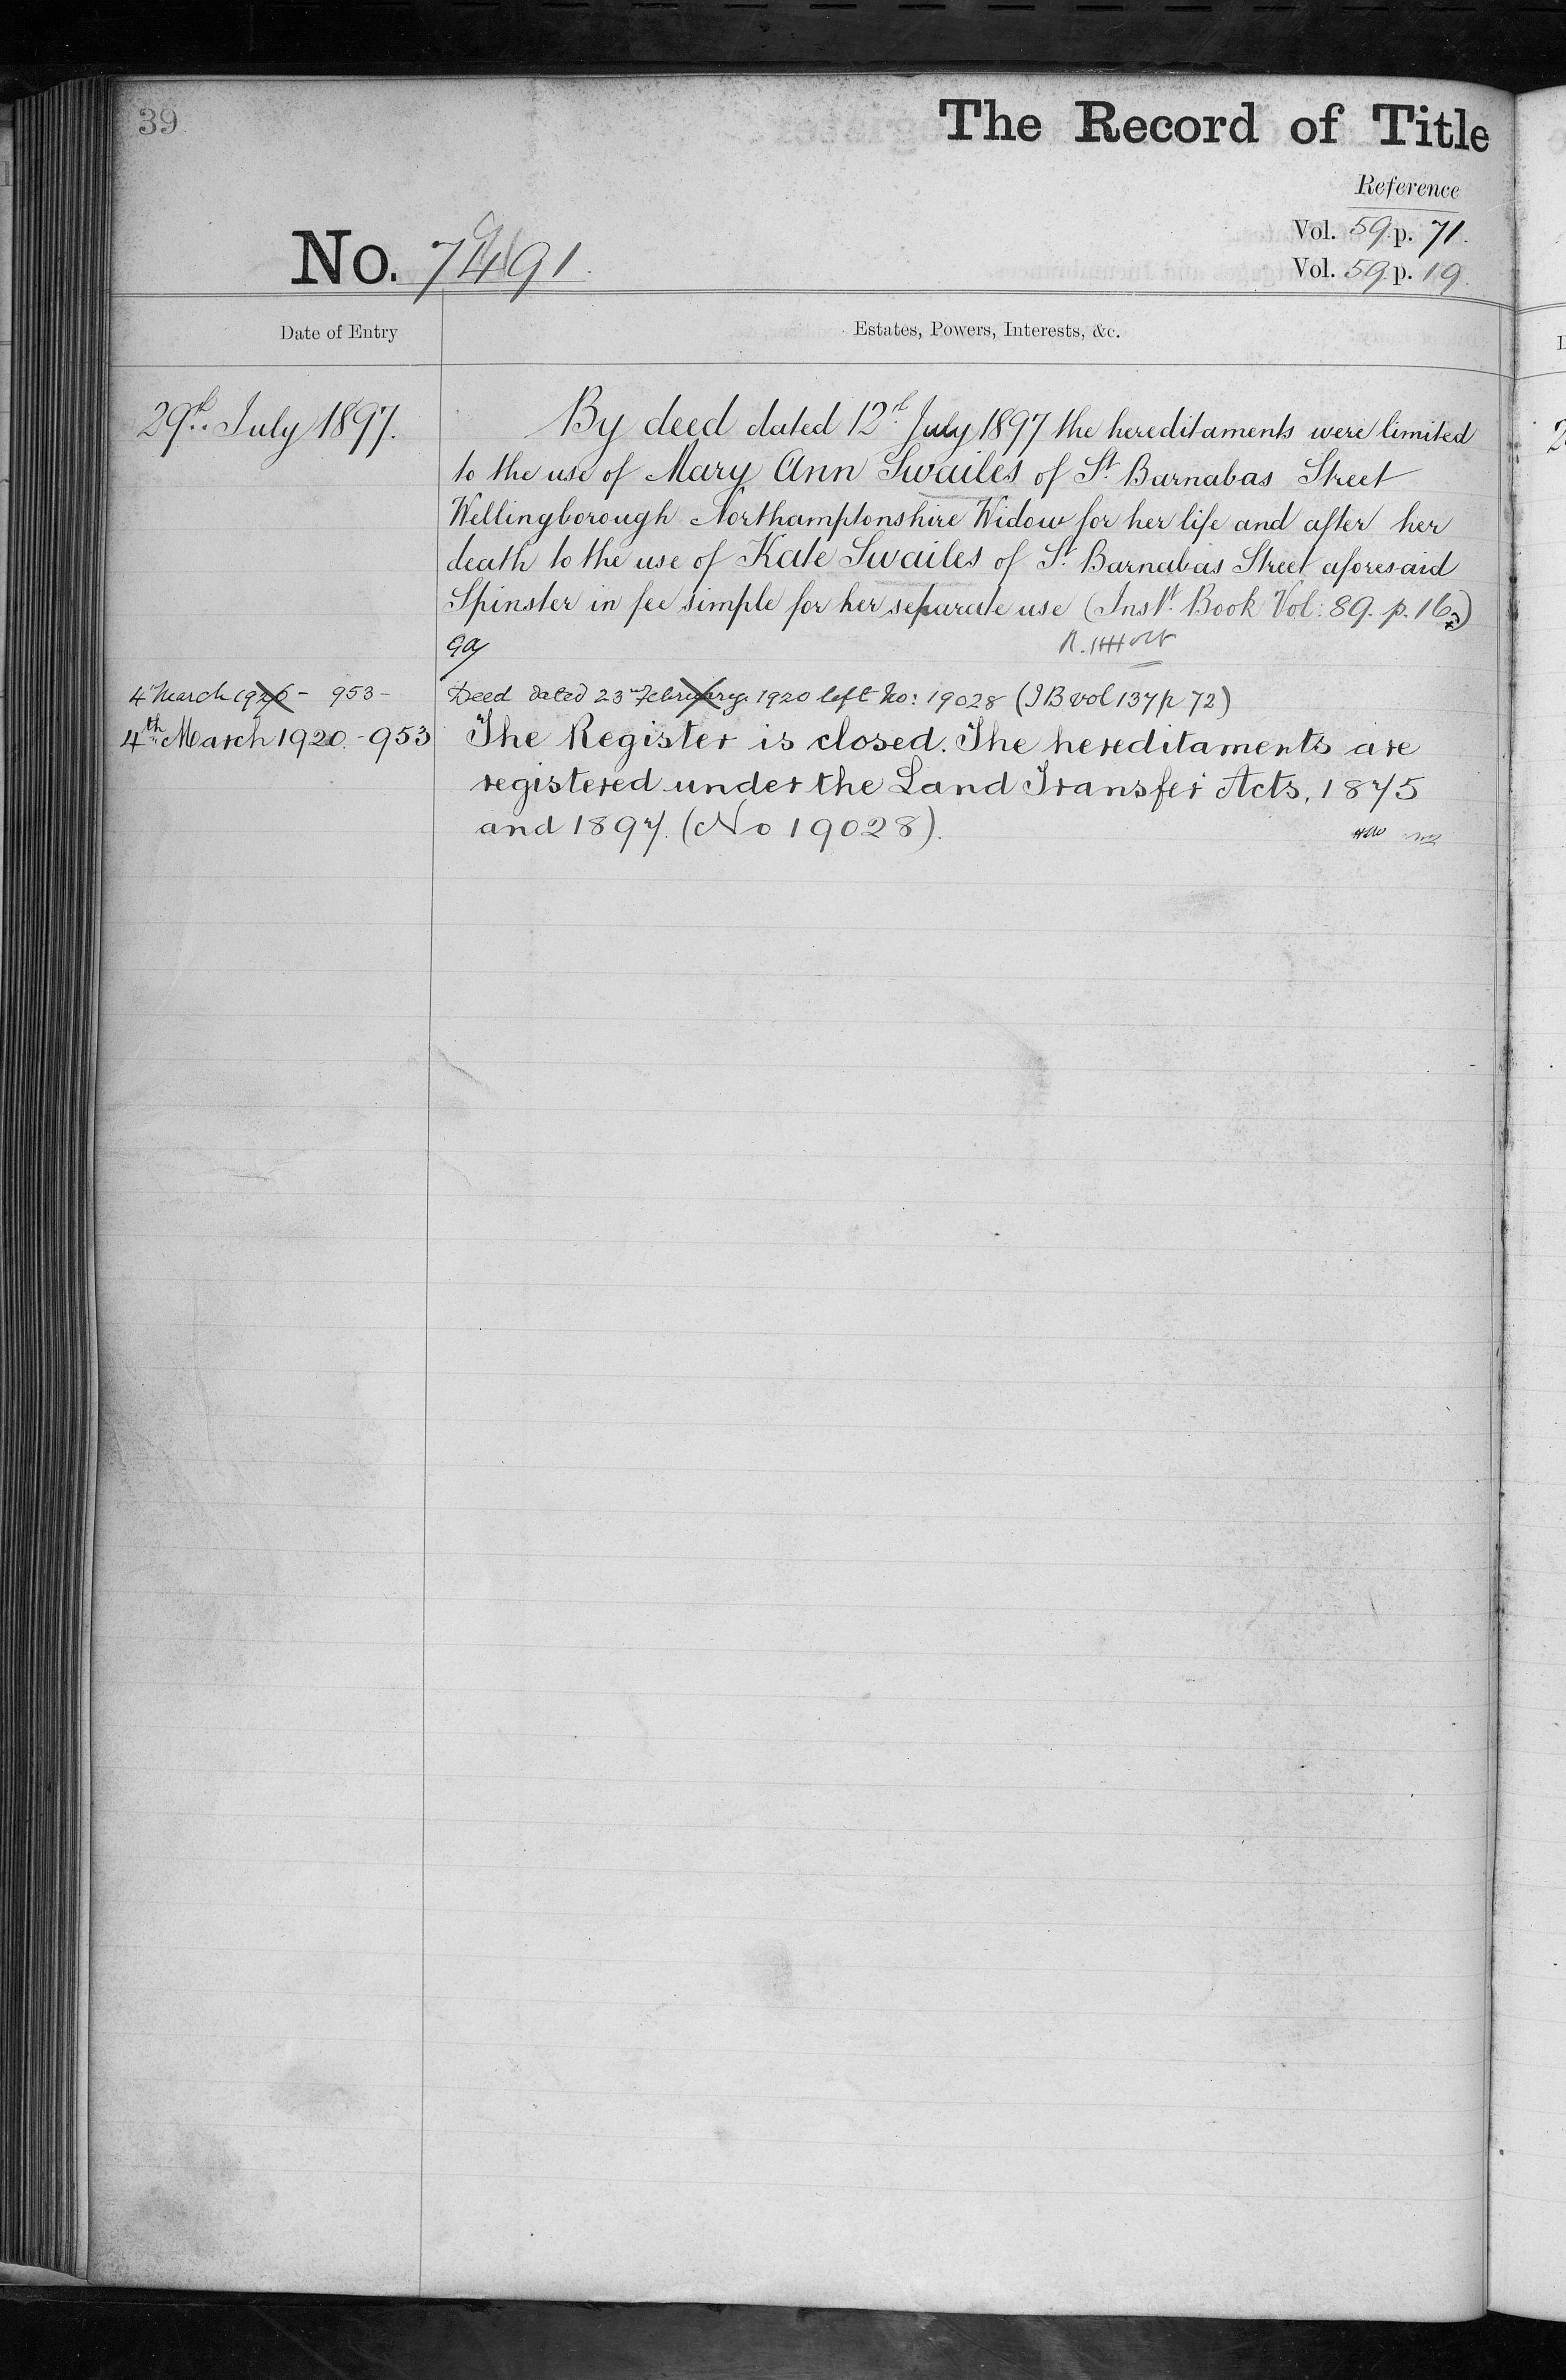 39
The Record of Title
Reference
Vol. 59 p. 71.
No. 7491.
Vol. 59 p. 19
Date of Entry
Estates, Powers, Interests, &c.
29th July 1897.
By deed dated 12th July 1897 the hereditaments were limited
to the use of Mary Ann Swailes of St. Barnabas Street
Wellingborough Northamptonshire Widow for her life and after her
death to the use of Kate Swailes of St. Barnabas Street aforesaid
Spinster in fee simple for her separate use (Inst. Book Vol: 89. p. 16)
4th March 1920 - 953 -
Deed dated 23rd February 1920 left No: 19028 (IB vol 137 p 72)
4th March 1920. - 953
The Register is closed. The hereditaments are
registered under the Land Transfer Acts, 1875
and 1897. (No 19028).